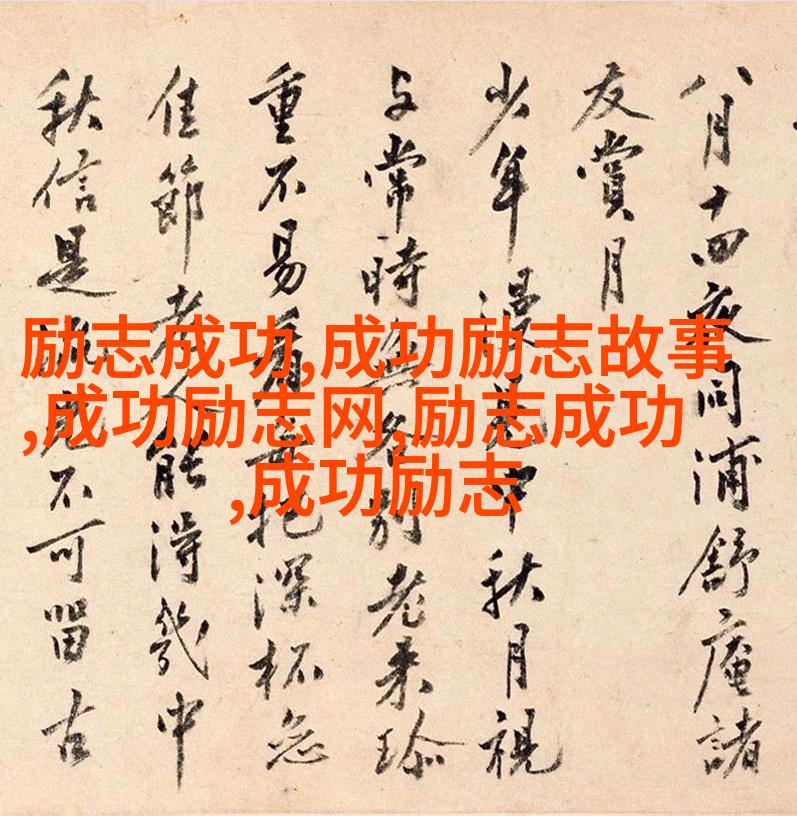 八月十四夜同浦舒庵諸
友賞月
少年漫見中秋月視
与常時無別老来珍
重不易看把深杯
佳節老人能得幾中
秋信是不可留古
励志成功,成功励志故事
,成功励志网,励志成功
,成功励志